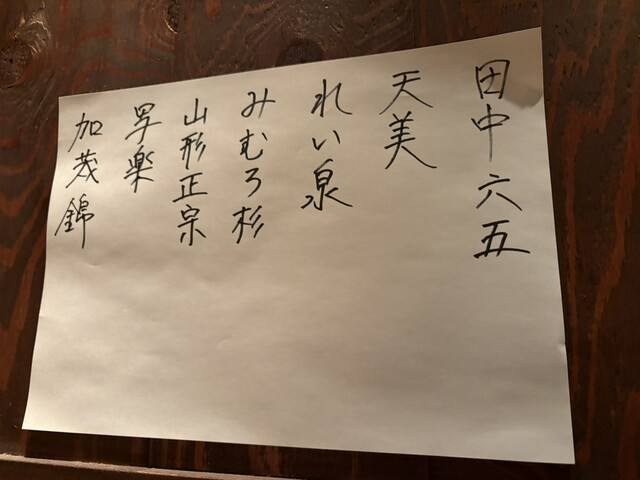 田中六五
天美
れい泉
みむろ杉
山形正宗
写楽
加茂錦